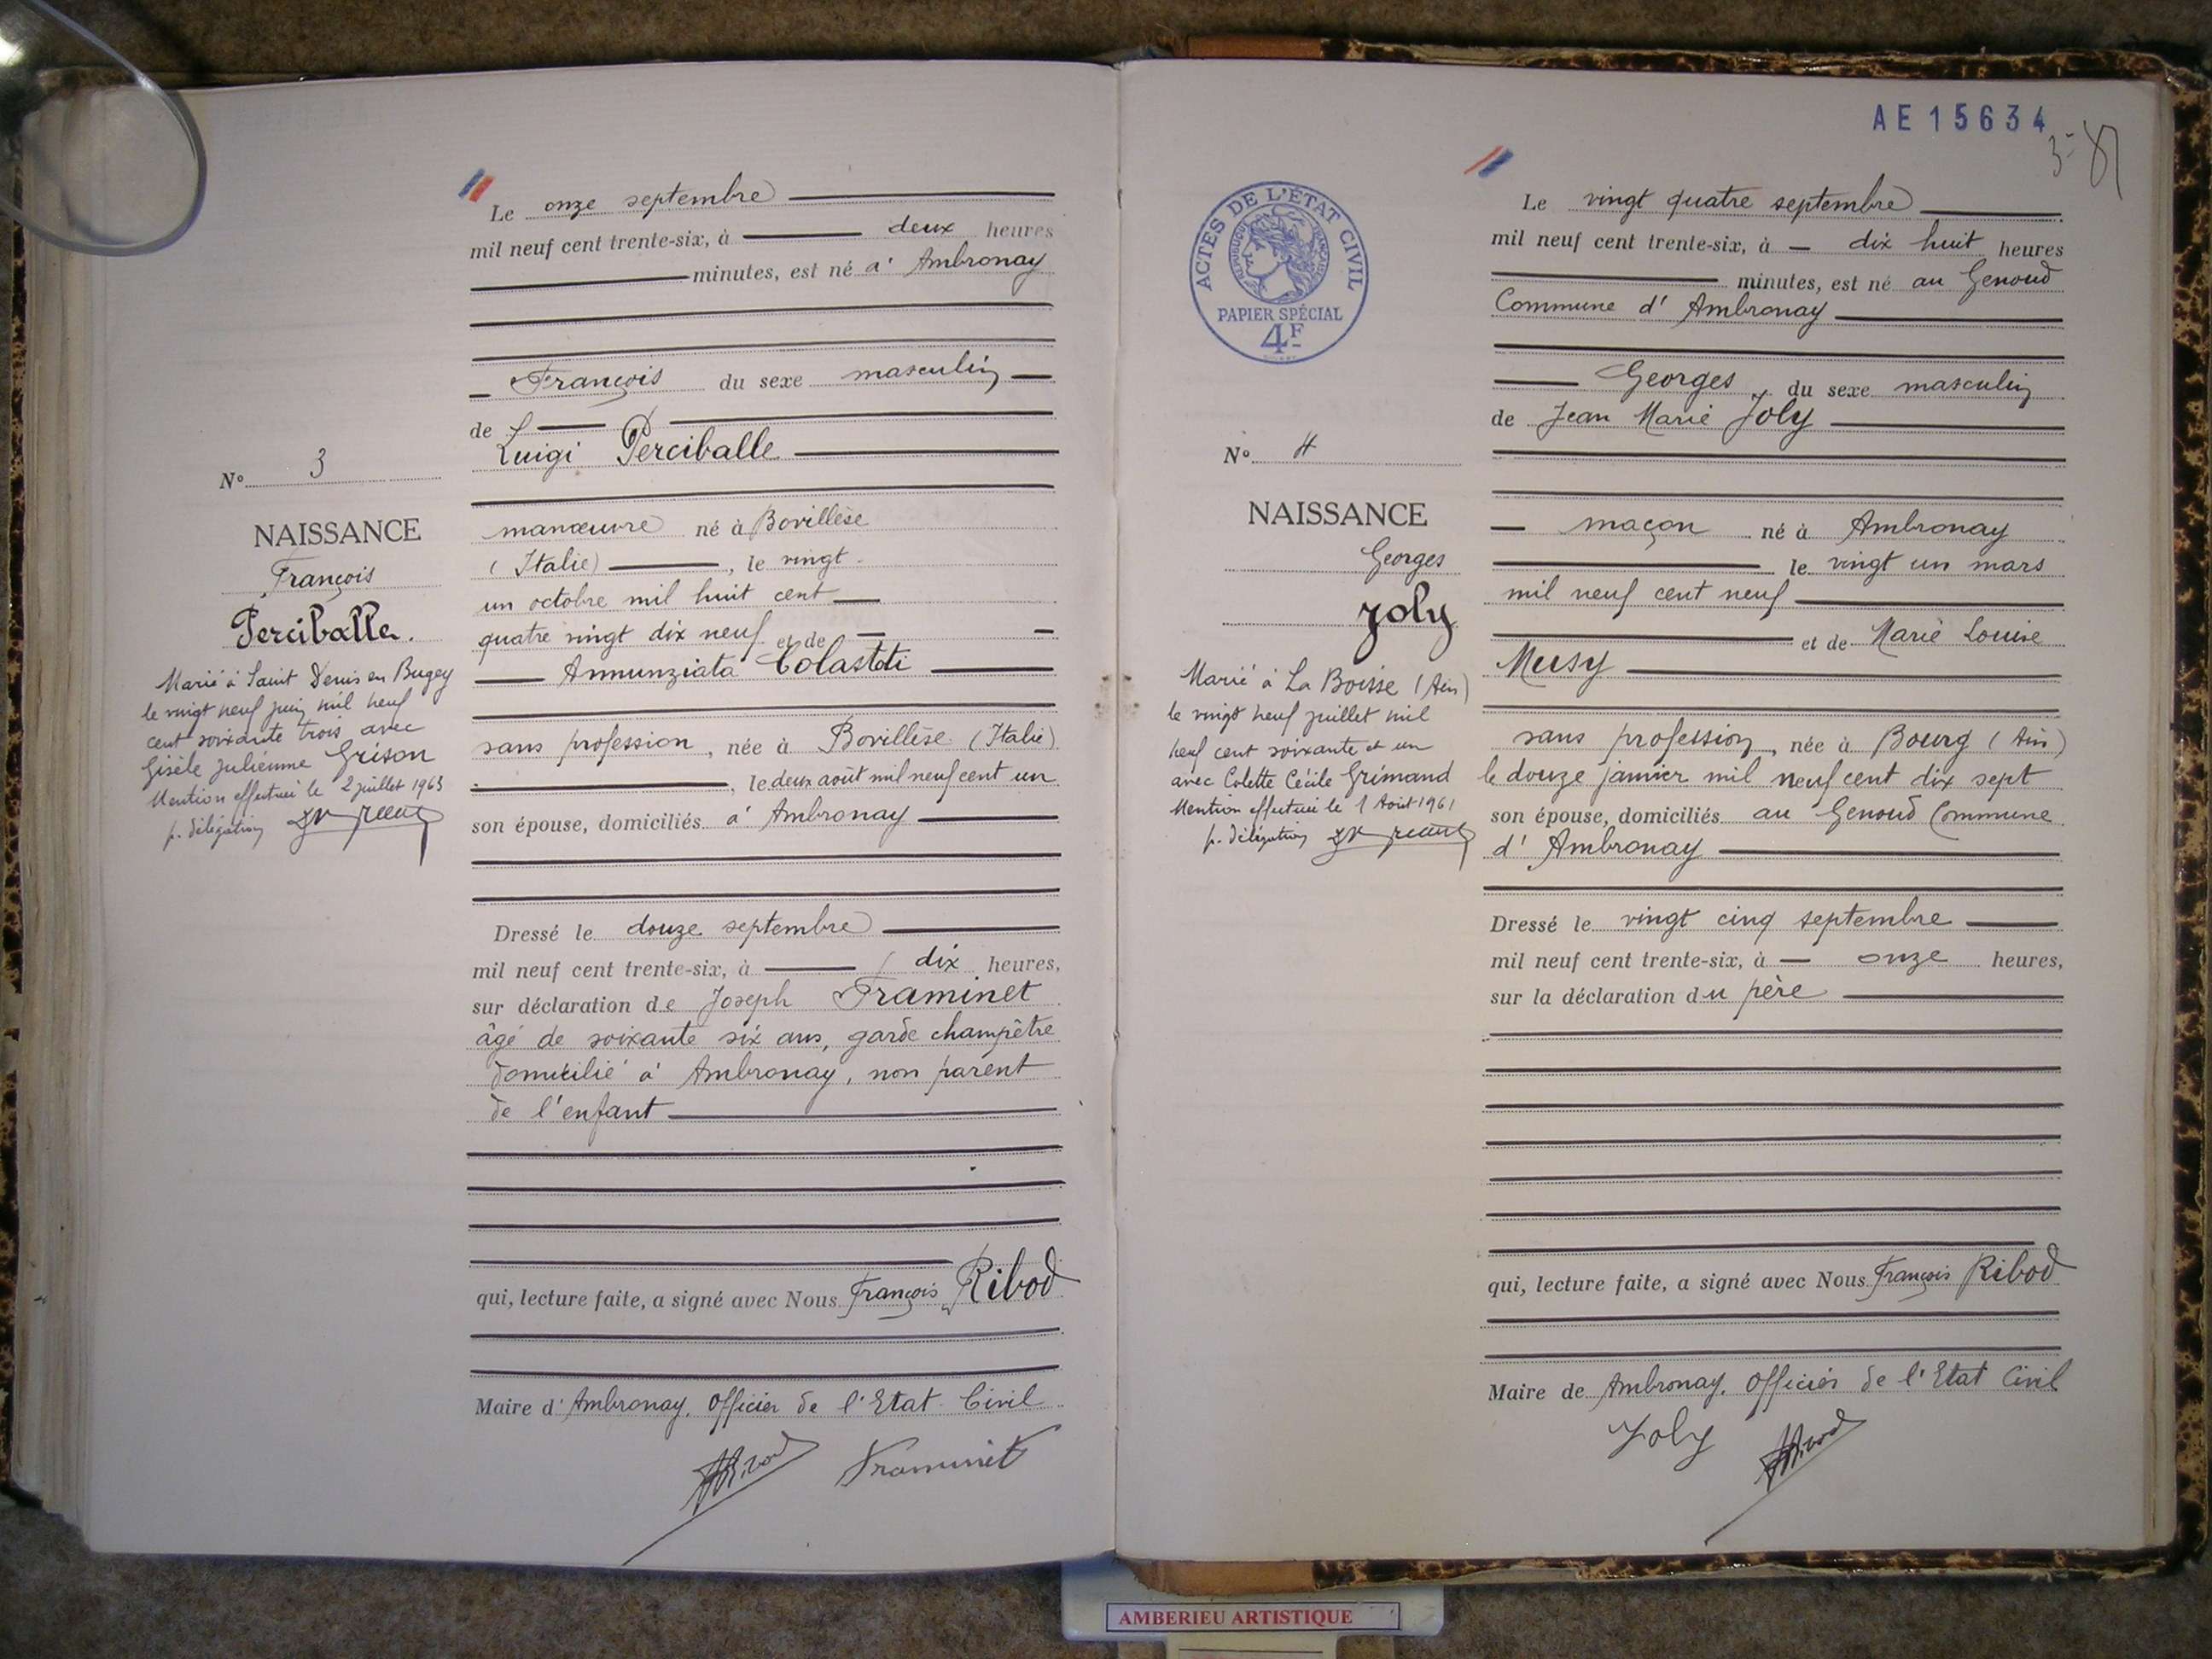 Le onze septembre
mil neuf cent trente-six, à deux heures
minutes, est né à Ambronay
François du sexe masculin
de
Luigi Perciballe
N° 3
NAISSANCE
François
Perciballe.
Marié à Saint Denis en Bugey
le vingt neuf juin mil neuf
cent soixante trois avec
Gisèle Julienne Grison
Mention effectuée le 2 juillet 1963
p. délégation
manœuvre né à Bovillèse
(Italie), le vingt
un octobre mil huit cent
quatre vingt dix neuf et de
Annunziata
sans profession, née à Bovillèse (Italie)
, le deux août mil neuf cent un
son épouse, domiciliés à Ambronay
Dressé le douze septembre
mil neuf cent trente-six, à dix heures,
sur déclaration de Joseph Framinet
âgé de soixante six ans, garde champêtre
domicilié à Ambronay, non parent
de l'enfant
qui, lecture faite, a signé avec Nous François Ribod
Maire d'Ambronay, Officier de l'Etat Civil
Ribod Framinet
AE15634
ACTES DE L'ÉTAT CIVIL
RÉPUBLIQUE FRANÇAISE
PAPIER SPÉCIAL
4F
Le vingt quatre septembre
mil neuf cent trente-six, à dix huit heures
minutes, est né au Genoud
Commune d'Ambronay
Georges, du sexe masculin
de Jean Marie Joly
N° 4
NAISSANCE
Georges
Joly
Marié à La Boisse (Ain)
le vingt neuf juillet mil
neuf cent soixante et un
avec Colette Cécile Grimand
Mention effectuée le 1 Août 1961
p. délégation
maçon né à Ambronay
le vingt un mars
mil neuf cent neuf
et de Marie Louise
Musy
sans profession, née à Bourg (Ain)
le douze janvier mil neuf cent dix sept
son épouse, domiciliés au Genoud Commune
d'Ambronay
Dressé le vingt cinq septembre
mil neuf cent trente-six, à onze heures,
sur la déclaration du père
qui, lecture faite, a signé avec Nous François Ribod
Maire de Ambronay, Officier de l'Etat Civil
Joly Ribod
AMBERIEU ARTISTIQUE